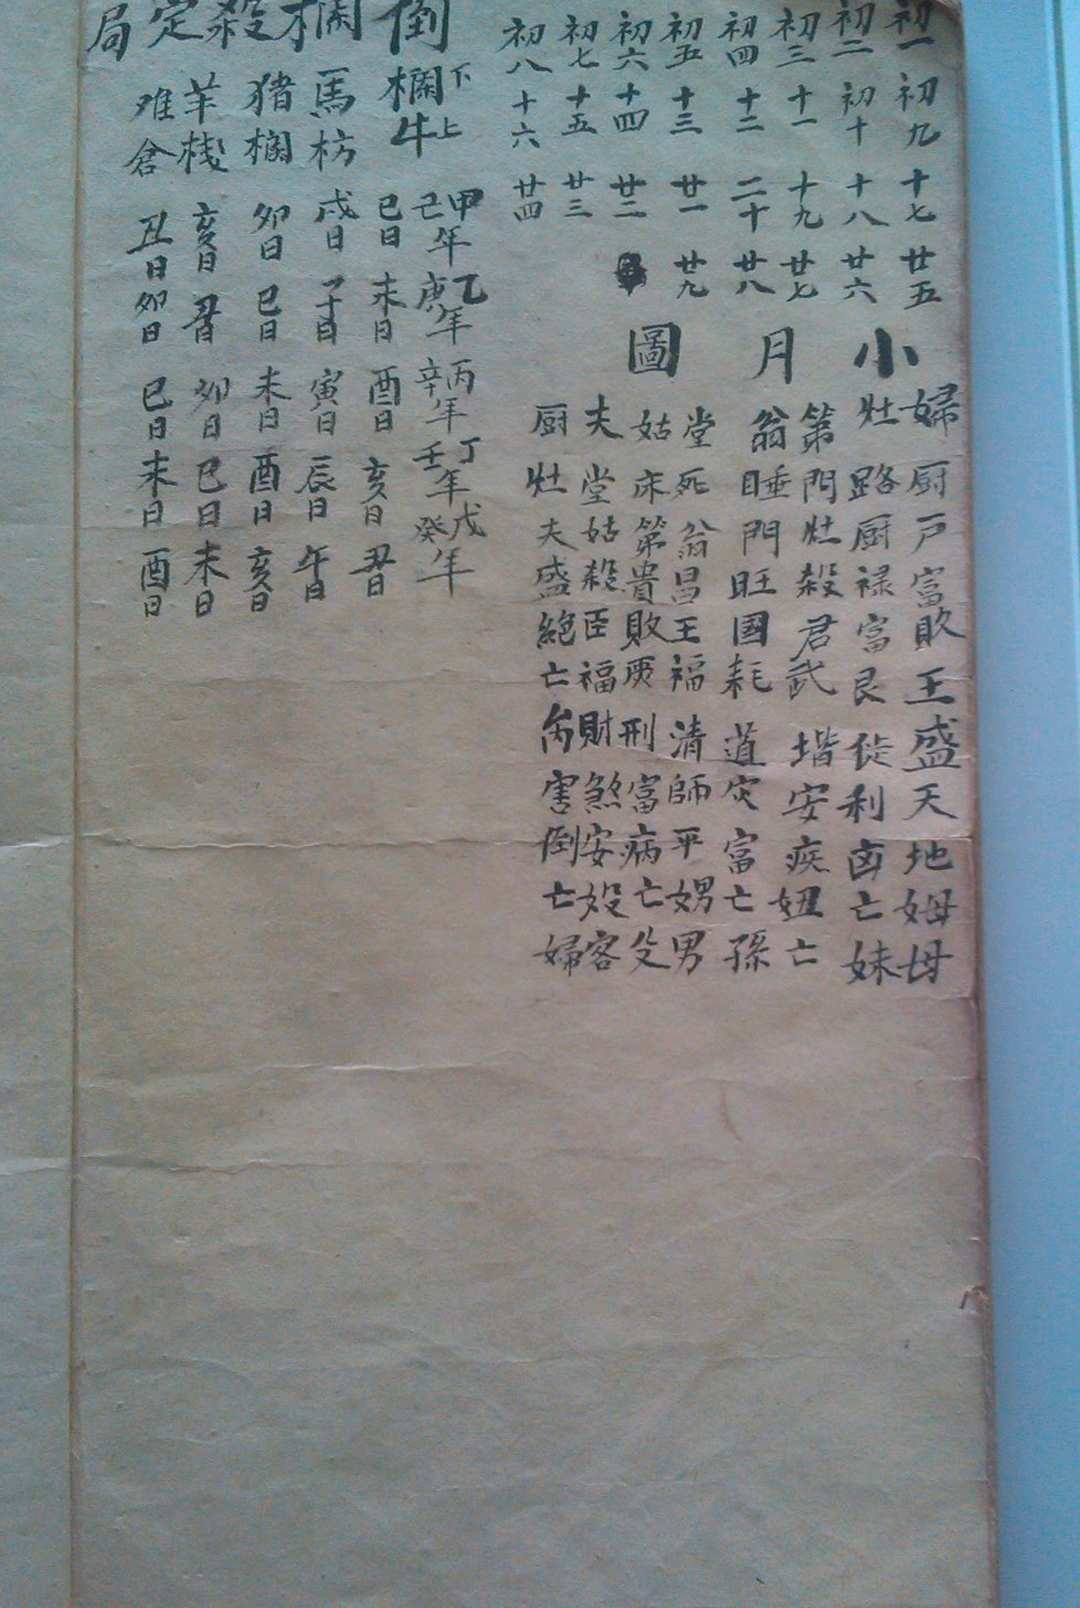 初一 初九 十七 廿五
初二 初十 十八 廿六
初三 十一 十九 廿七
初四 十二 二十 廿八
初五 十三 廿一 廿九
初六 十四 廿二
初七 十五 廿三
初八 十六 廿四
小月圖
婦厨户富敗王盛天地姆母
灶路厨禄富艮徒利凶亡妹
第門灶殺君武堦安疾妞亡
翁睡門旺國耗道灾富亡孫
堂死翁昌王福清師平娚男
姑床第貴敗庚刑當病亡父
夫堂姑殺臣福財煞安客
厨灶夫盛絕亡害倒亡婦
倒欄殺定局
下上
欄牛
甲己年 乙庚年 丙辛年 丁壬年 戊癸年
巳日 未日 酉日 亥日 丑日
馬枋 戌日 子日 寅日 辰日 午日
猪欄 卯日 巳日 未日 酉日 亥日
羊栈 亥日 丑日 卯日 巳日 未日
难倉 丑日 卯日 巳日 未日 酉日